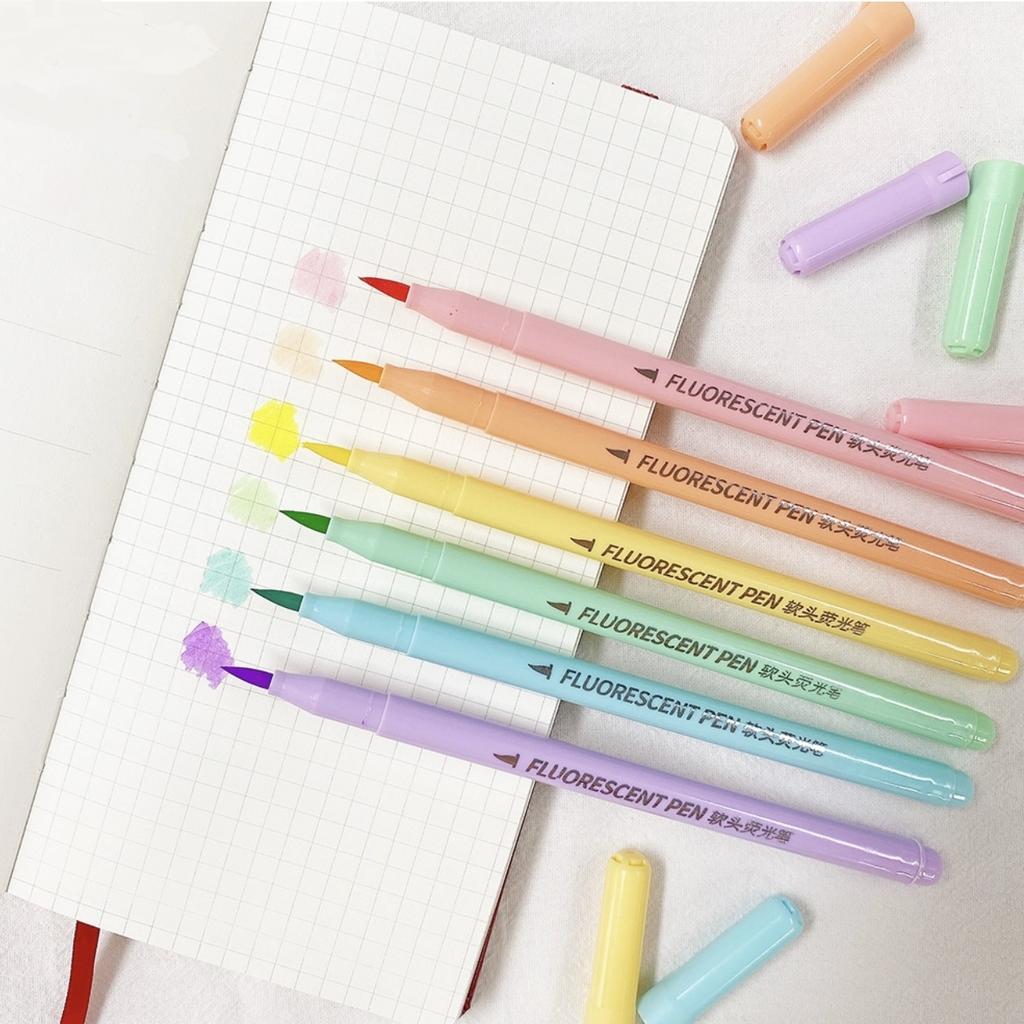 FLUORESCENT PEN 软头荧光笔
FLUORESCENT PEN 软头荧光笔
FLUORESCENT PEN 软头荧光笔
FLUORESCENT PEN 软头荧光笔
FLUORESCENT PEN 软头荧光笔
FLUORESCENT PEN 软头荧光笔